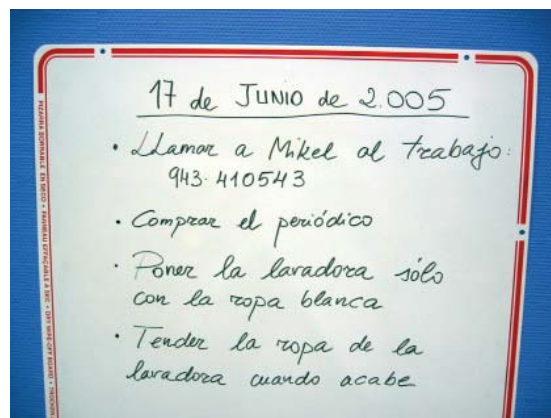 17 de JUNIO de 2.005
• Llamar a Mikel al trabajo:
943-410543
• Comprar el periódico
• Poner la lavadora sólo
con la ropa blanca
• Tender la ropa de la
lavadora cuando acabe
PIZARRA BORRABLE EN SECO • PANNEAU EFFAÇABLE A SEC • DRY WIPE-OFF BOARD •